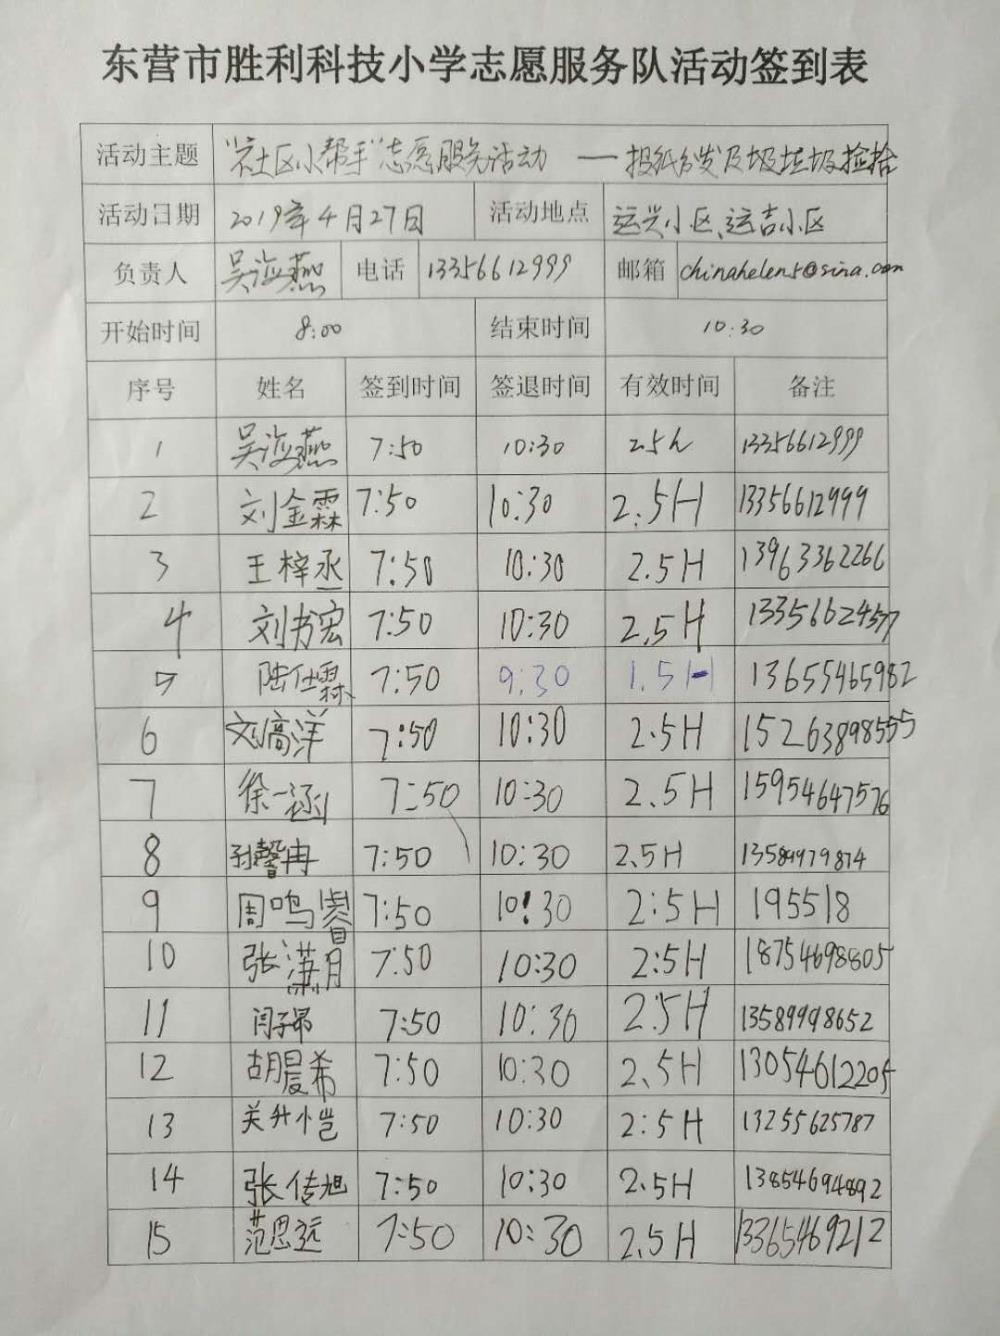 东营市胜利科技小学志愿服务队活动签到表
活动主题 "社区小帮手"志愿服务活动 ——报纸分发及圾垃圾捡拾
活动日期 2019年4月27日 活动地点 运兴小区、运吉小区
负责人 吴海燕 电话 13356612999 邮箱 chinahelens@sina.com
开始时间 8:00 结束时间 10:30
序号 姓名 签到时间 签退时间 有效时间 备注
1 吴海燕 7:50 10:30 2.5h 13356612999
2 刘金霖 7:50 10:30 2.5H 13356612999
3 王梓丞 7:50 10:30 2.5H 13963362266
4 刘书宏 7:50 10:30 2.5H 13356624577
5 陆仕霖 7:50 9:30 1.5H 13655465982
6 刘高洋 7:50 10:30 2.5H 15263898555
7 徐一涵 7:50 10:30 2.5H 15954647576
8 孙馨冉 7:50 10:30 2.5H 13589979874
9 周鸣 7:50 10:30 2:5H 195518
10 张潇月 7:50 10:30 2:5H 18754698805
11 闫子昂 7:50 10:30 2.5H 13589998652
12 胡晨希 7:50 10:30 2.5H 13054612205
13 关升恺 7:50 10:30 2:5H 13255625787
14 张传旭 7:50 10:30 2.5H 13854694892
15 范思远 7:50 10:30 2.5H 13365469212